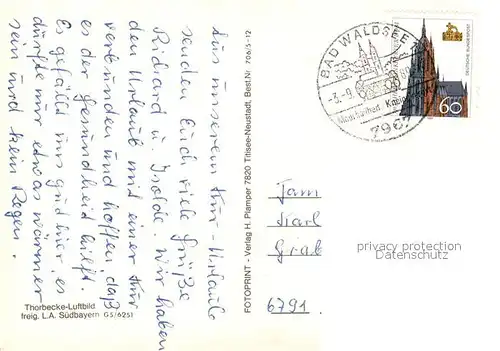 Aus unserem Kur-Urlaub
senden Euch viele Grüße
Richard u. Isolde. Wir haben
den Urlaub mit einer Kur
verbunden und hoffen, daß
es der Gesundheid hilft.
Es gefällt uns gud hier, es
dürfte nur etwas wärmer
sein und kein Regen.
Thorbecke-Luftbild
freig. L.A. Südbayern G5/6251
FOTOPRINT - Verlag H. Plamper 7820 Titisee-Neustadt, Best.Nr 706/5-12
BAD WALDSEE
7967
DEUTSCHE BUNDESPOST
60
Fam
Karl
Graf
6791
privacy protection
Datenschutz